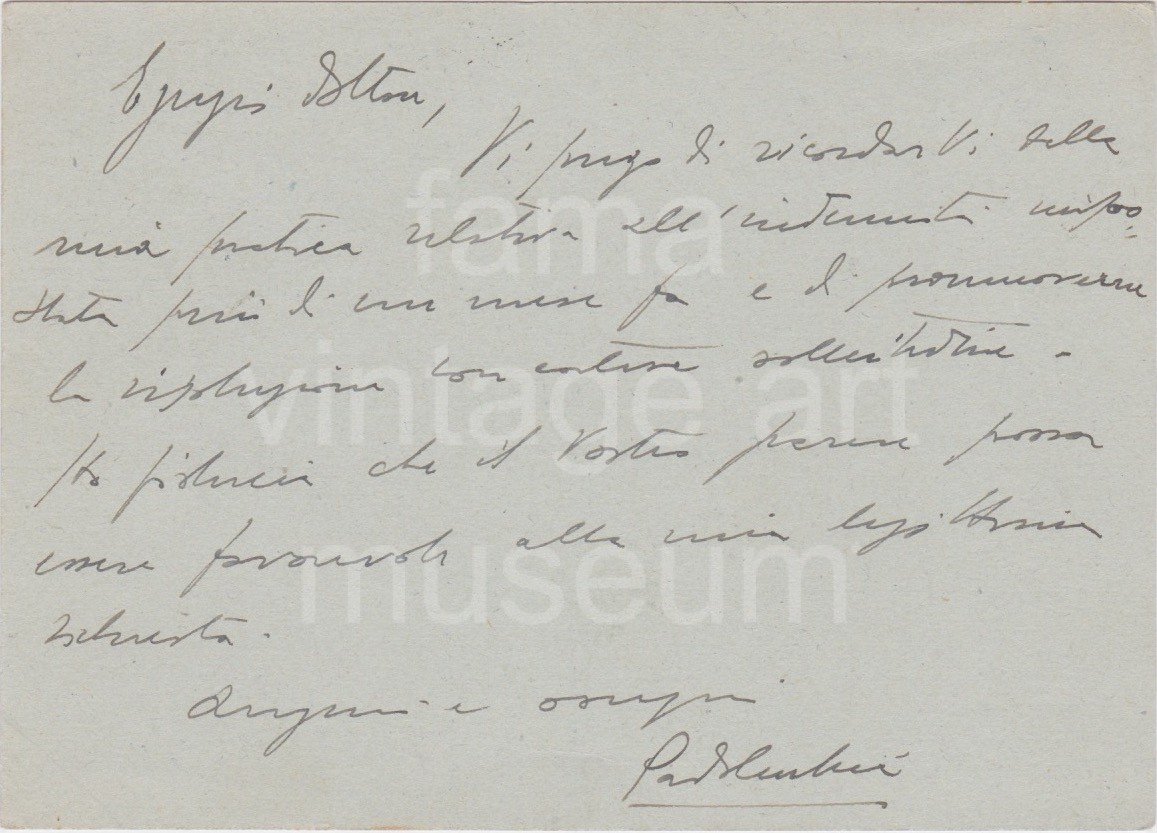 Egregio Dottore,
Vi prego di ricordarVi della
mia pratica relativa all'indennità
più di un mese fa e di promuoverne
la risoluzione con cortese sollecitudine -
Ho fiducia che il Vostro parere possa
essere favorevole alla mia legittima
richiesta.
Auguri e ossequi
fama
vintage art
museum